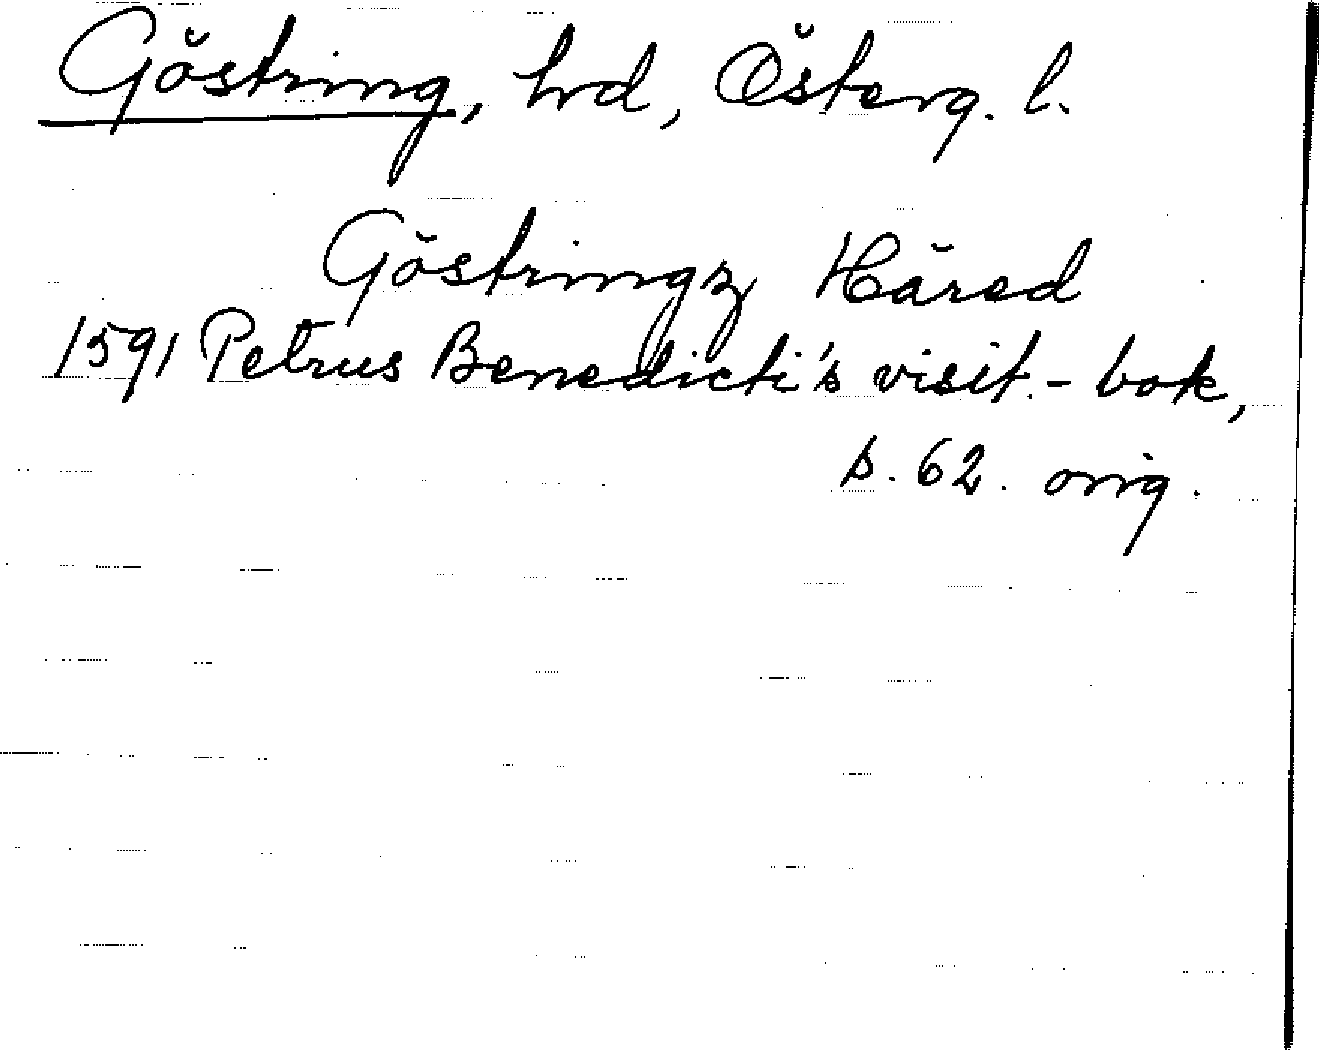 Göstring, hrd, Österg. l.
Göstringz Härad
1591 Petrus Benedicti's visit.-bok,
s. 62. orig.